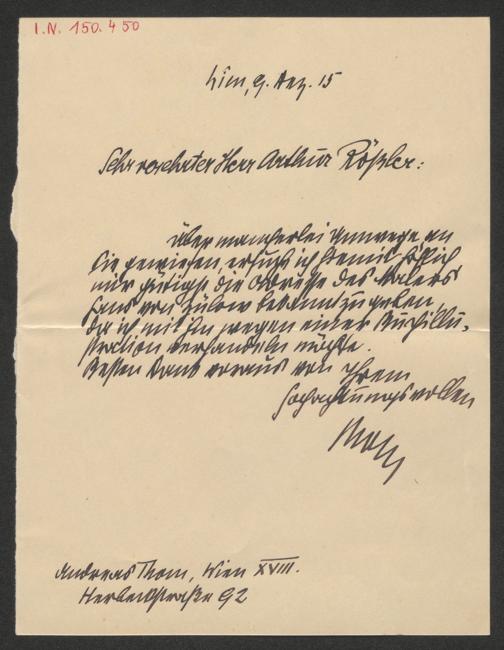 I.N. 150.450
Wien, 9. Dez. 15
Sehr verehrter Herr Arthur Rößler:
Über mancherlei Umwege an
Sie gewiesen, ersuche ich Sie mit höflich
mir gütigst die Adresse des Malers
Hans von Zülow bekanntzugeben,
da ich mit ihm wegen einer Buchillu-
stration verhandeln möchte.
Besten Dank voraus von Ihrem
hochachtungsvollen
Thom
Andreas Thom, Wien XVIII.
Herbeckstraße 92